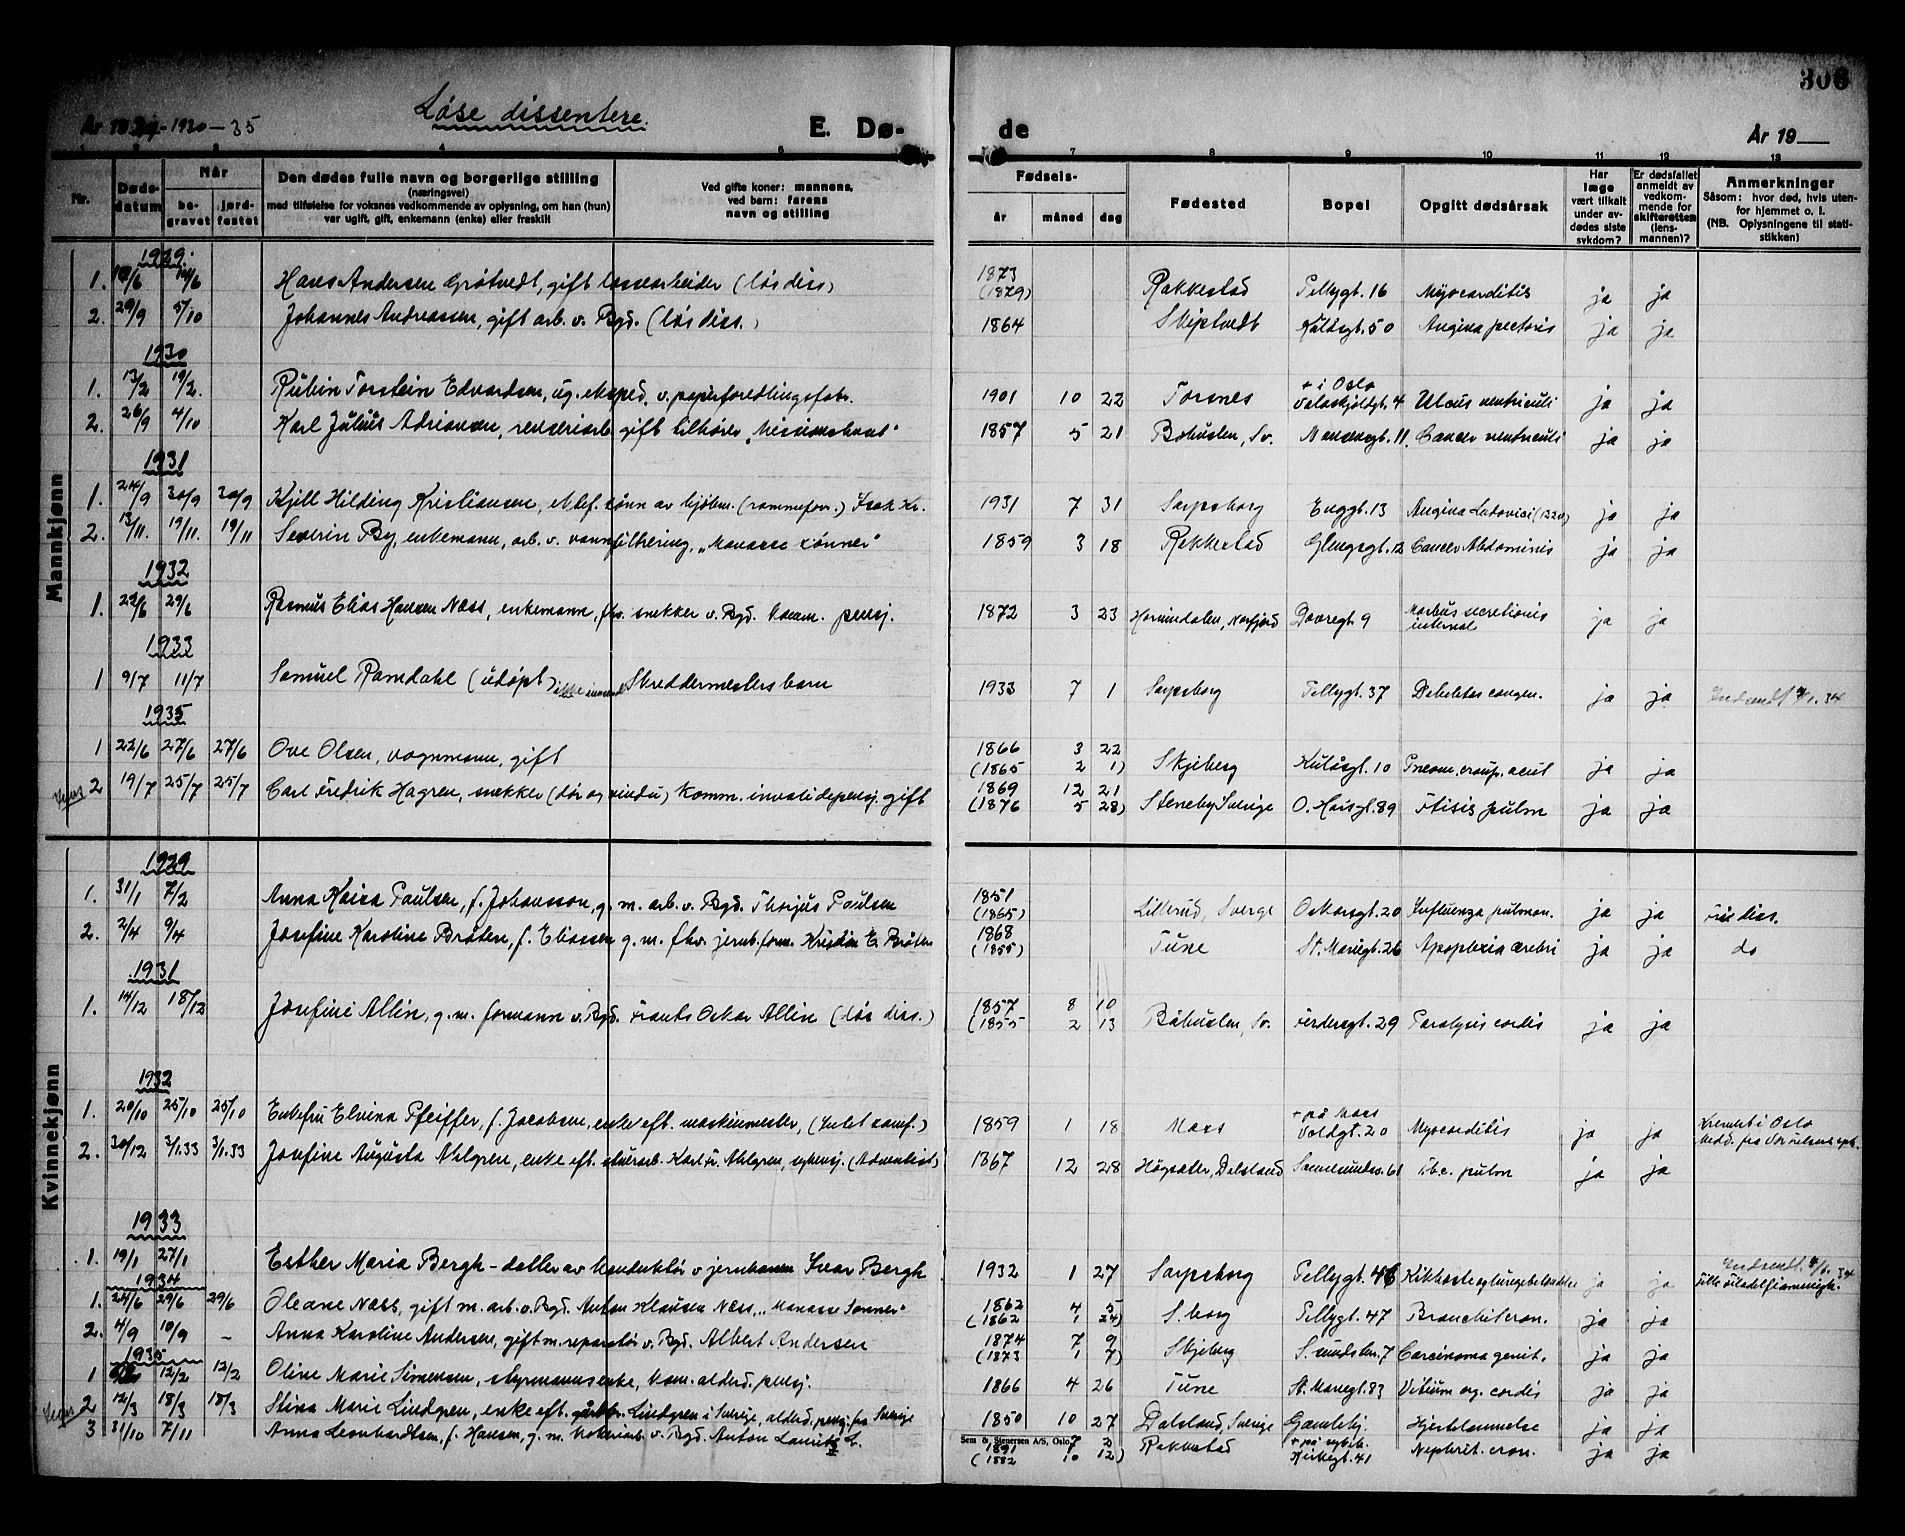 306
År 19 -1930-35
Løse dissentere.
E. Dø-
de
År 19
1 2 3 4 5
7 8 9 10 11 12 13
Nr.
Døds-
datum
Når
be-
gravet
jord-
festet
Den dødes fulle navn og borgerlige stilling
(næringsvei)
med tilføielse for voksnes vedkommende av oplysning, om han (hun)
var ugift, gift, enkemann (enke) eller fraskilt
Ved gifte koner: mannens,
ved barn: farens
navn og stilling
Fødsels-
år måned dag
Fødested
Bopel
Opgitt dødsårsak
Har
læge
vært tilkalt
under av-
dødes siste
sykdom?
Er dødsfallet
anmeldt av
vedkom-
mende for
skifteretten
(lens-
mannen)?
Anmerkninger
Såsom: hvor død, hvis uten-
for hjemmet o. l.
(NB. Oplysningene til stati-
stikken)
Mannkjønn
1929.
1. 18/6 /6 Hans Andersen Grøtvedt, gift lossearbeider (løs diss) 1873 (1879) Rakkestad Pellygt. 16 Myocarditis ja ja
2. 29/9 5/10 Johannes Andreassen, gift arb. v. Bgd. (løs diss.) 1864 Skiptvedt Kulåsgt. 50 Angina pectoris ja ja
1930
1. 13/2 19/2. Rubin Torstein Edvardsen, ug. eksped. v. papirforedlingsfabr. 1901 10 22 Torsnes + i Oslo Valaskjoldgt. 4 Ulcus ventriculi ja ja
2. 26/9 4/10 Karl Julius Adriansen, renseriarb. gift tilhører "Missionshuset" 1857 5 21 Bohuslen, Sv. Nansensgt. 11. Cancer ventriculi ja ja
1931
1. 24/9 30/9 30/9 Kjell Hilding Kristiansen, sønn av kjøbm. (rammeforr.) Isak Kr. 1931 7 31 Sarpsborg Enggt. 13 Angina Ludovici ja ja
2. 13/11. 19/11. 19/11 Severin By, enkemann, arb. v. vannfiltrering, "Manasse sønner" 1859 3 18 Rakkestad Glengsgt. 12 Cancer Abdominis ja ja
1932
1. 22/6 29/6 Rasmus Elias Hansen Næss, enkemann, fhv. snekker v. Bgd. komm. pensj. 1872 3 23 Hornindalen, Nordfjord Dovregt. 9 Morbus secretionis internal ja ja
1933
1 9/7 11/7 Samuel Ramdahl (udøpt) Skreddermesters barn 1933 7 1 Sarpsborg Pellygt. 37 Debilitas congen. ja ja Innsendt 9/1. 34
1935
1 22/6 27/6 27/6 Ove Olsen, vognmann, gift 1866 3 22 (1865 2 1) Skjeberg Kulåsgt. 10 Pneum. croup. acut ja ja
2 19/7 25/7 25/7 Carl Fredrik Hagren, snekker (dør og vindu) komm. invalidepensj. gift 1869 12 21 (1876 5 28) Steneby Sverige O. Haisgt. 89 Ftisis pulm ja ja
Kvinnekjønn
1929
1. 31/1 7/2 Anna Kaisa Paulsen, f. Johansson, g. m. arb. v. Bgd. Thorjus Paulsen 1851 (1865) Lillerud, Sverge Oskarsgt. 20 Influenza pulmon. ja ja Frie diss.
2. 2/4 9/4 Josefine Karoline Bråten, f. Eliassen g. m. fhv. jernb.form. Kristian E. Bråten 1868 (1855) Tune St. Mariegt. 26 Apoplexia cerebri ja ja do
1931
1. 14/12 18/12 Josefine Allin, g. m. formann v. Bgd. Frants Oskar Allin (løs diss.) 1857 8 10 (1855 2 13 Båhuslen, Sv. Ferdersgt. 29 Paralysis cordis ja ja
1932
1. 20/10 25/10 25/10 Enkefru Elvina Pfeiffer, f. Jacobsen, enke eft. maskinmester, (Intet samf.) 1859 1 18 Moss + på Moss Voldgt. 20 Myocarditis ja ja Kremert i Oslo
2. 30/12 3/1.33 3/1.33 Josefine Augusta Ahlgren, enke eft. Karl Fr. Ahlgren, (Adventist) 1867 12 28 Högsäter, Dalsland 61 Tbc. pulm ja ja
1933
1. 19/1 27/1 Esther Maria Bergh - datter av konduktør v jernbanen Ivar Bergh 1932 1 27 Sarpsborg Pellygt. 46 Kikhoste og lungebetendelse ja ja Innsendt 9/1. 34
1934
1. 24/6 29/6 29/6 Oleane Næss, gift m. arb. v. Bgd. Anton Klausen Næss, "Manasse Sønner" 1862 4 5 (1862 1 24) S.borg Pellygt. 47 Bronchit cron. ja ja
2. 4/9 10/9 - Anna Karoline Andersen, gift m. reparatør v. Bgd. Albert Andersen 1874 7 9 (1873 1 7) Skjeberg 7 Carcinoma genit. ja ja
1935
1 12/2 12/2 Oline Marie Simensen, styrmannsenke, kom. alderd. pensj. 1866 4 26 Tune St. Mariegt. 83 Vitium org. cordis ja ja
2 12/3 18/3 18/3 Stina Marie Lindgren, enke eft. Lindgren i Sverige, alderd. pensj. fra Sverige 1850 10 27 Dalsland, Sverige Gamleby. Hjertelammelse ja ja
3 31/10 7/11 Anna Leonhardtsen, f. Hansen, g. m. kokeriarb. v. Bgd. Anton Lauritz L. 1891 7 2 (1882 10 12) Rakkestad + på sykeh. Kirkegt. 41 Nephrit. cron. ja ja
Sem & Stenersen A/S, Oslo.